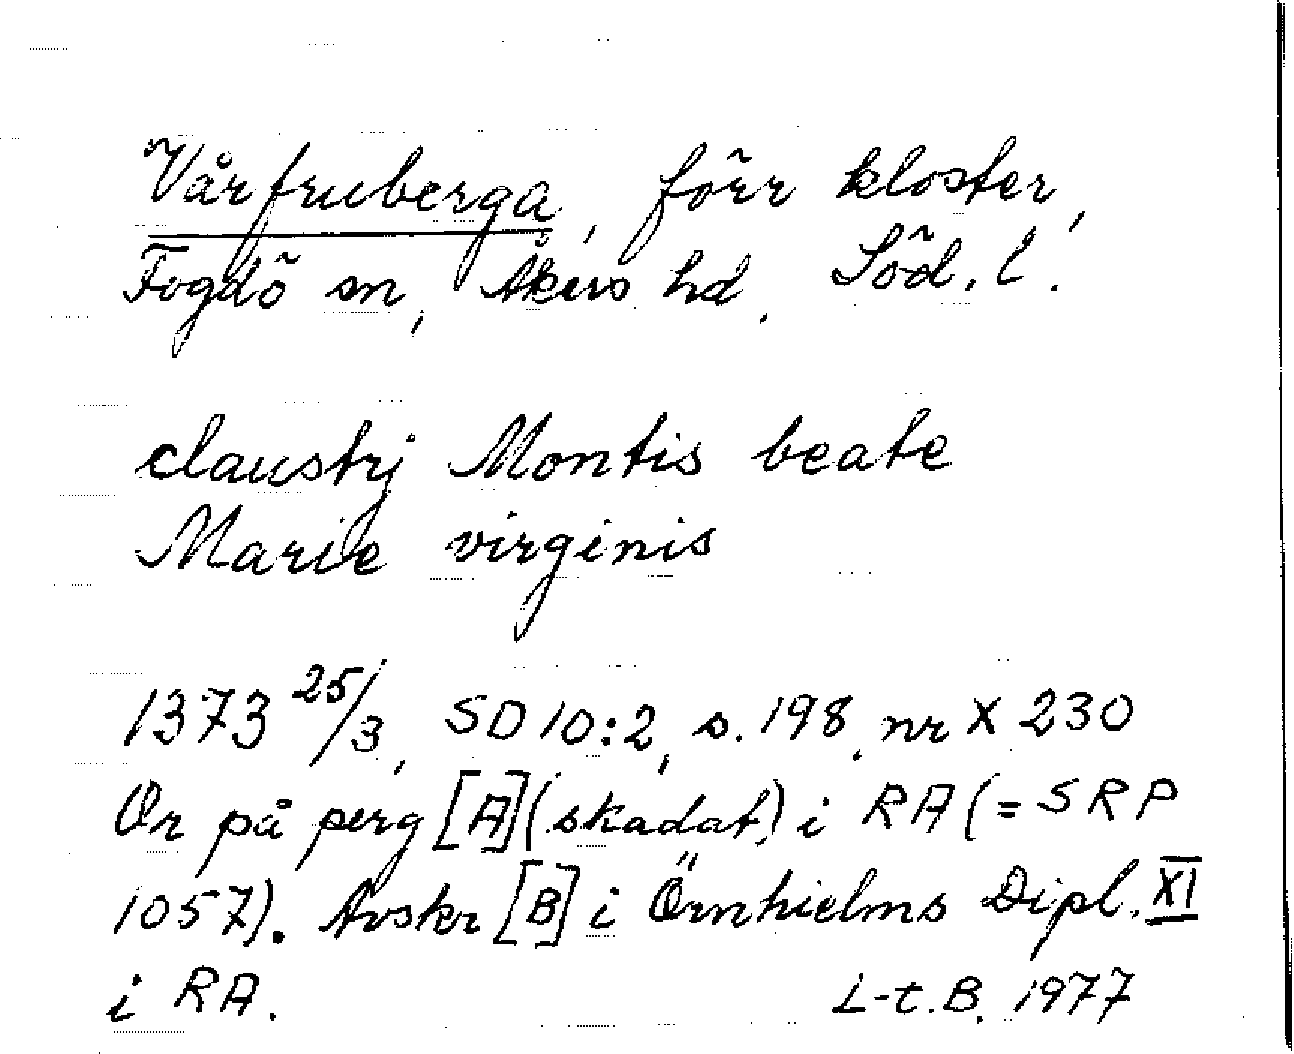 Vårfruberga, förr kloster,
Fogdö sn, Åkers hd. Söd. l.
claustrj Montis beate
Marie virginis
1373 25/3, SD 10:2, s. 198, nr X 230
Or på perg [A] (skadat) i RA (= SRP
1057). Avskr [B] i Örnhielms Dipl. XI
i RA.
L-t.B. 1977